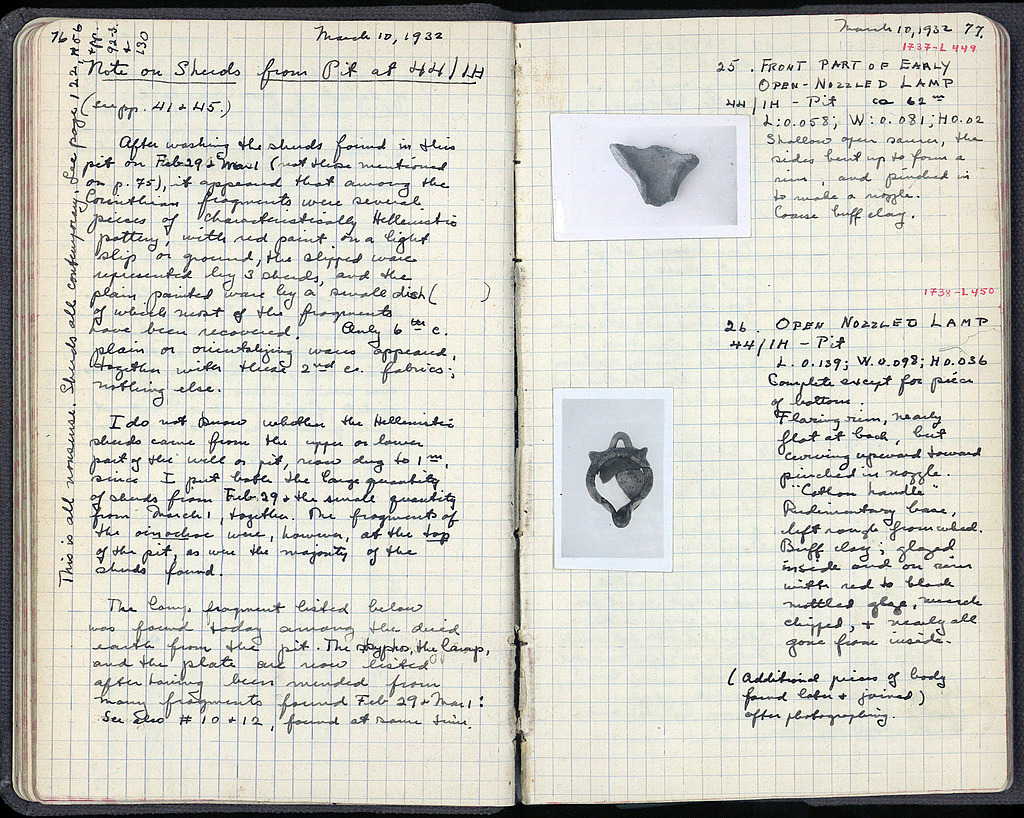 76
March 10, 1932
Note on Sherds from Pit at 44/1H
(see pp. 41 & 45.)
After washing the sherds found in this
pit on Feb 29 & Mar 1 (not those mentioned
on p. 75), it appeared that among the
Corinthian fragments were several
pieces of characteristically Hellenistic
pottery, with red paint on a light
slip or ground, the slipped ware
represented by 3 sherds, and the
plain painted ware by a small dish (      )
of which most of the fragments
have been recovered. Only 6th c.
plain or orientalizing wares appeared,
together with these 2nd c. fabrics;
nothing else.
I do not know whether the Hellenistic
sherds came from the upper or lower
part of the well or pit, now dug to 1m,
since I put both the large quantity
of sherds from Feb. 29 & the small quantity
from March 1, together. The fragments of
the oinochoe were, however, at the top
of the pit, as were the majority of the
sherds found.
The lamp fragment listed below
was found today among the dried
earth from the pit. The skyphos, the lamp,
and the plate are now listed
after having been mended from
many fragments found Feb 29 & Mar 1:
See also # 10 & 12, found at same time.
This is all nonsense. Sherds all contemporary. See page 122, # 56
& pp.
92-3
&
130
March 10, 1932 77.
1737-L 449
25. FRONT PART OF EARLY
OPEN-NOZZLED LAMP
44/1H - Pit ca 62m
L: 0.058; W: 0.081; H 0.02
Shallow open saucer, the
sides bent up to form a
rim, and pinched in
to make a nozzle.
Coarse buff clay.
1738-L450
26. OPEN NOZZLED LAMP
44/1H - Pit
L. 0.139; W. 0.098; H 0.036
Complete except for pieces
of bottom.
Flaring rim, nearly
flat at back, but
curving upward toward
pinched in nozzle.
"Cothon handle"
Rudimentary base,
left rough from wheel.
Buff clay; glazed
inside and on rim
with red to black
mottled glaze, much
chipped, & nearly all
gone from inside.
(Additional pieces of body
found later & joined)
after photographing.